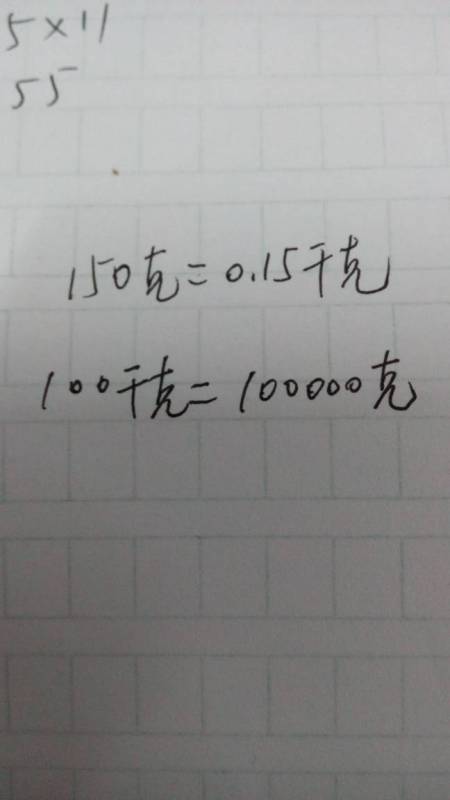 5×11
55
150克=0.15千克
100千克=100000克